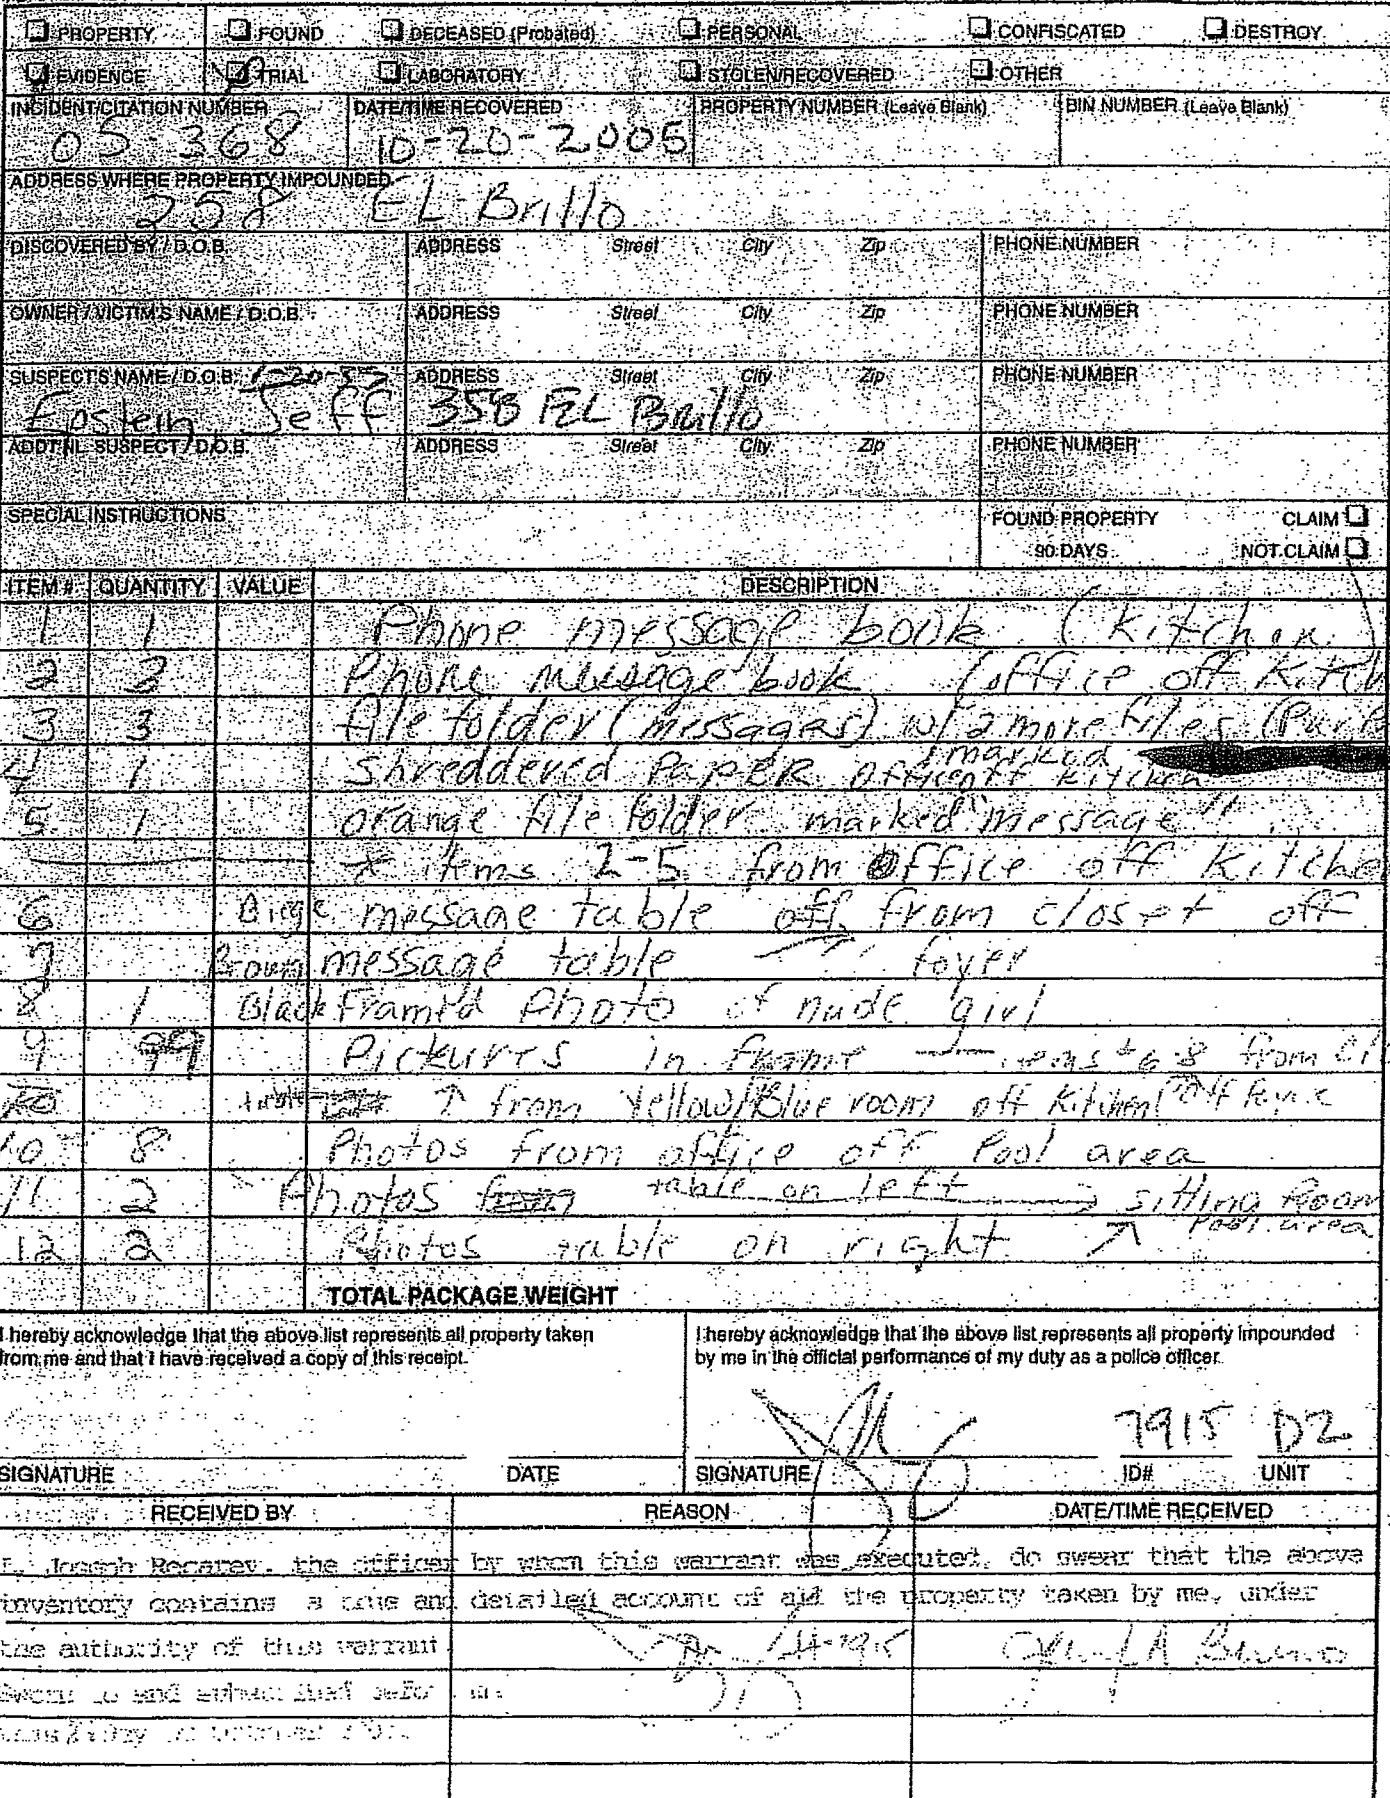 PROPERTY FOUND DECEASED (Probated) PERSONAL CONFISCATED DESTROY
EVIDENCE TRIAL LABORATORY STOLEN/RECOVERED OTHER
INCIDENT/CITATION NUMBER DATE/TIME RECOVERED PROPERTY NUMBER (Leave Blank) BIN NUMBER (Leave Blank)
05-368 10-20-2005
ADDRESS WHERE PROPERTY IMPOUNDED
258 EL Brillo
DISCOVERED BY / D.O.B. ADDRESS Street City Zip PHONE NUMBER
OWNER / VICTIM'S NAME / D.O.B. ADDRESS Street City Zip PHONE NUMBER
SUSPECT'S NAME / D.O.B. ADDRESS Street City Zip PHONE NUMBER
Epstein Jeff 358 EL Brillo
ADDT'NL SUSPECT / D.O.B. ADDRESS Street City Zip PHONE NUMBER
SPECIAL INSTRUCTIONS FOUND PROPERTY CLAIM
90 DAYS NOT CLAIM
ITEM # QUANTITY VALUE DESCRIPTION
1 1 Phone message book (Kitchen
2 2 Phone message book (office off Kitch
3 3 file folder (messages) w/ 2 more files
marked
4 1 Shreddered PAPER office off kitchen
5 1 orange file folder marked "message"
* items 2-5 from office off Kitche
6 message table off from closet off
7 Brown message table foyer
8 1 Black Framed Photo of nude girl
9 99 Pickures in frame items 6-8 from
↑ from Yellow/Blue room off Kitchen
10 8 Photos from office off Pool area
11 2 Photos table on left → sitting Room
Pool area
12 2 Photos table on right ↗
TOTAL PACKAGE WEIGHT
I hereby acknowledge that the above list represents all property taken
from me and that I have received a copy of this receipt.
I hereby acknowledge that the above list represents all property impounded
by me in the official performance of my duty as a police officer.
7915 D2
SIGNATURE DATE SIGNATURE ID# UNIT
RECEIVED BY REASON DATE/TIME RECEIVED
I, Joseph Recarey, the officer by whom this warrant was executed, do swear that the above
inventory contains a true and detailed account of all the property taken by me, under
the authority of this warrant
Sworn to and subscribed before me